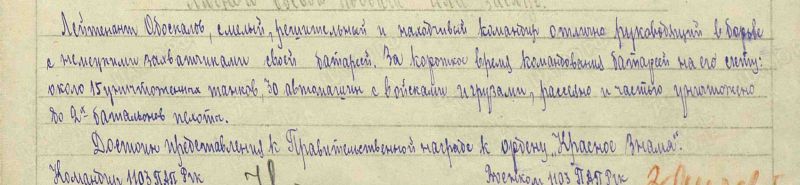 Лейтенант Обоскалов, смелый, решительный и находчивый командир отлично руководящий в борьбе
с немецкими захватчиками своей батареей. За короткое время командования батареей на его счету:
около 15 уничтоженных танков, 30 автомашин с войсками и грузами, рассеяно и частью уничтожено
до 2х батальонов пехоты.
Достоин представления к Правительственной награде к ордену "Красное Знамя".
Командир 1103 ПАП РГК Военком 1103 ПАП РГК